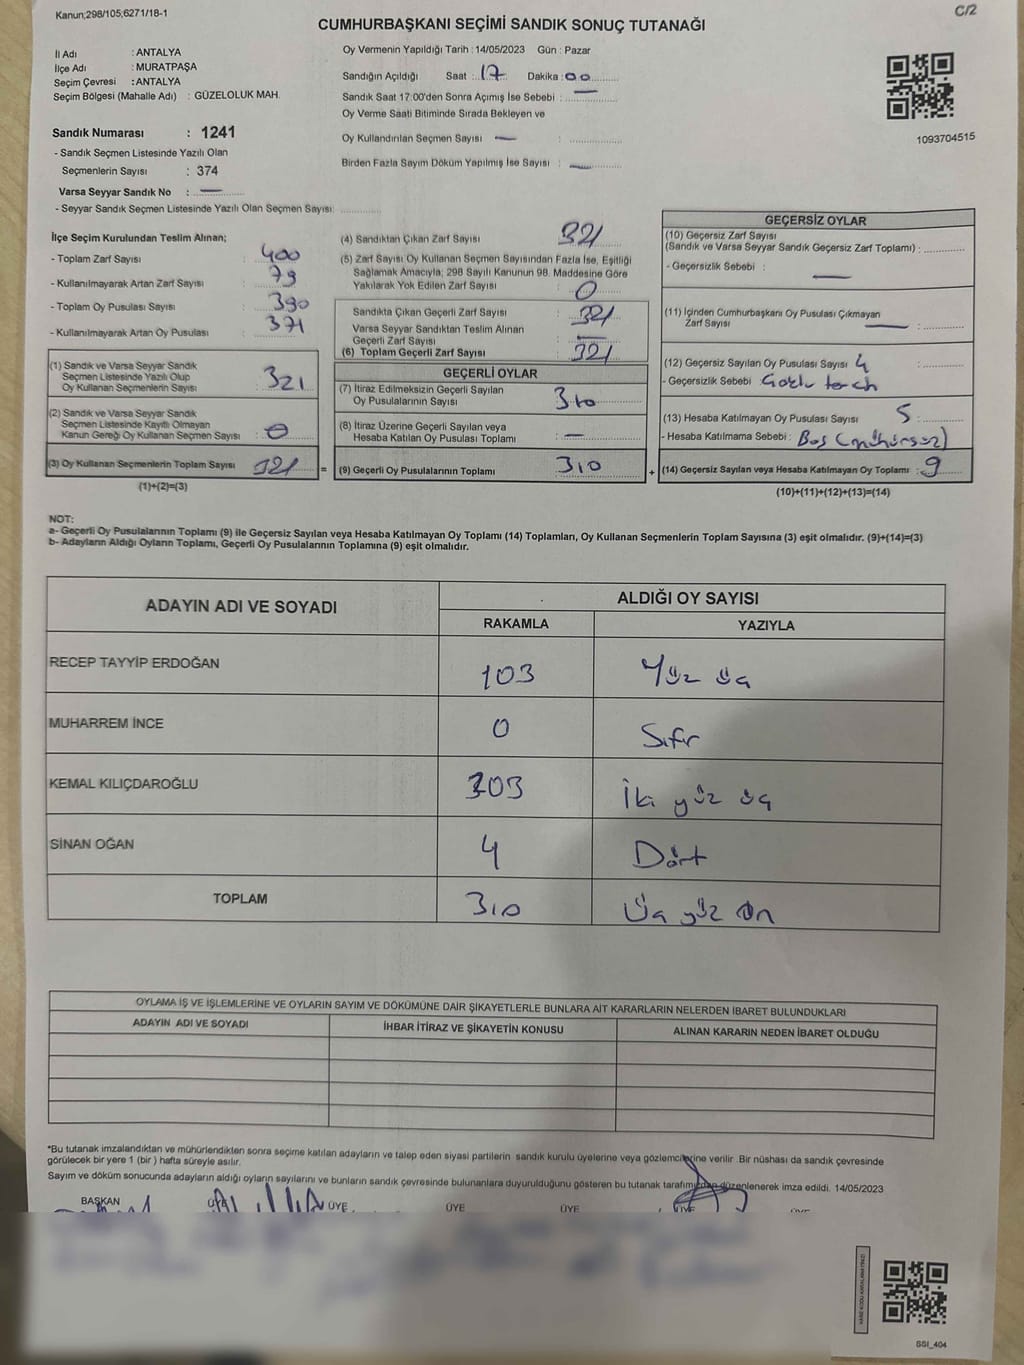 Kanun;298/105;6271/18-1
C/2
CUMHURBAŞKANI SEÇİMİ SANDIK SONUÇ TUTANAĞI
İl Adı : ANTALYA
İlçe Adı : MURATPAŞA
Seçim Çevresi : ANTALYA
Seçim Bölgesi (Mahalle Adı) : GÜZELOLUK MAH.
Sandık Numarası : 1241
- Sandık Seçmen Listesinde Yazılı Olan
Seçmenlerin Sayısı : 374
Varsa Seyyar Sandık No : —
- Seyyar Sandık Seçmen Listesinde Yazılı Olan Seçmen Sayısı: ............
Oy Vermenin Yapıldığı Tarih : 14/05/2023 Gün : Pazar
Sandığın Açıldığı Saat : 17 Dakika : 00
Sandık Saat 17:00'den Sonra Açımış İse Sebebi : —
Oy Verme Saati Bitiminde Sırada Bekleyen ve
Oy Kullandırılan Seçmen Sayısı — : ............
Birden Fazla Sayım Döküm Yapılmış İse Sayısı : —
1093704515
İlçe Seçim Kurulundan Teslim Alınan;
- Toplam Zarf Sayısı : 400
- Kullanılmayarak Artan Zarf Sayısı : 79
- Toplam Oy Pusulası Sayısı : 390
- Kullanılmayarak Artan Oy Pusulası : 371
(1) Sandık ve Varsa Seyyar Sandık
Seçmen Listesinde Yazılı Olup
Oy Kullanan Seçmenlerin Sayısı : 321
(2) Sandık ve Varsa Seyyar Sandık
Seçmen Listesinde Kayıtlı Olmayan
Kanun Gereği Oy Kullanan Seçmen Sayısı : 0
(3) Oy Kullanan Seçmenlerin Toplam Sayısı 321
(1)+(2)=(3)
=
(4) Sandıktan Çıkan Zarf Sayısı 321
(5) Zarf Sayısı Oy Kullanan Seçmen Sayısından Fazla İse, Eşitliği
Sağlamak Amacıyla; 298 Sayılı Kanunun 98. Maddesine Göre
Yakılarak Yok Edilen Zarf Sayısı 0
Sandıkta Çıkan Geçerli Zarf Sayısı : 321
Varsa Seyyar Sandıktan Teslim Alınan
Geçerli Zarf Sayısı : —
(6) Toplam Geçerli Zarf Sayısı : 321
GEÇERLİ OYLAR
(7) İtiraz Edilmeksizin Geçerli Sayılan
Oy Pusulalarının Sayısı : 310
(8) İtiraz Üzerine Geçerli Sayılan veya
Hesaba Katılan Oy Pusulası Toplamı : —
(9) Geçerli Oy Pusulalarının Toplamı : 310
+
GEÇERSİZ OYLAR
(10) Geçersiz Zarf Sayısı
(Sandık ve Varsa Seyyar Sandık Geçersiz Zarf Toplamı) : ............
- Geçersizlik Sebebi : —
(11) İçinden Cumhurbaşkanı Oy Pusulası Çıkmayan
Zarf Sayısı — : ............
(12) Geçersiz Sayılan Oy Pusulası Sayısı 4 : ............
- Geçersizlik Sebebi Çoklu tercih
(13) Hesaba Katılmayan Oy Pusulası Sayısı 5
- Hesaba Katılmama Sebebi : Boş (mühürsüz)
(14) Geçersiz Sayılan veya Hesaba Katılmayan Oy Toplamı : 9
(10)+(11)+(12)+(13)=(14)
NOT:
a- Geçerli Oy Pusulalarının Toplamı (9) ile Geçersiz Sayılan veya Hesaba Katılmayan Oy Toplamı (14) Toplamları, Oy Kullanan Seçmenlerin Toplam Sayısına (3) eşit olmalıdır. (9)+(14)=(3)
b- Adayların Aldığı Oyların Toplamı, Geçerli Oy Pusulalarının Toplamına (9) eşit olmalıdır.
ADAYIN ADI VE SOYADI
ALDIĞI OY SAYISI
RAKAMLA YAZIYLA
RECEP TAYYİP ERDOĞAN 103 Yüz üç
MUHARREM İNCE 0 Sıfır
KEMAL KILIÇDAROĞLU 203 İki yüz üç
SİNAN OĞAN 4 Dört
TOPLAM 310 Üç yüz on
OYLAMA İŞ VE İŞLEMLERİNE VE OYLARIN SAYIM VE DÖKÜMÜNE DAİR ŞİKAYETLERLE BUNLARA AİT KARARLARIN NELERDEN İBARET BULUNDUKLARI
ADAYIN ADI VE SOYADI İHBAR İTİRAZ VE ŞİKAYETİN KONUSU ALINAN KARARIN NEDEN İBARET OLDUĞU
*Bu tutanak imzalandıktan ve mühürlendikten sonra seçime katılan adayların ve talep eden siyasi partilerin sandık kurulu üyelerine veya gözlemcilerine verilir .Bir nüshası da sandık çevresinde
görülecek bir yere 1 (bir ) hafta süreyle asılır.
Sayım ve döküm sonucunda adayların aldığı oyların sayılarını ve bunların sandık çevresinde bulunanlara duyurulduğunu gösteren bu tutanak tarafımızdan düzenlenerek imza edildi. 14/05/2023
BAŞKAN ÜYE ÜYE ÜYE ÜYE ÜYE
SSI_404